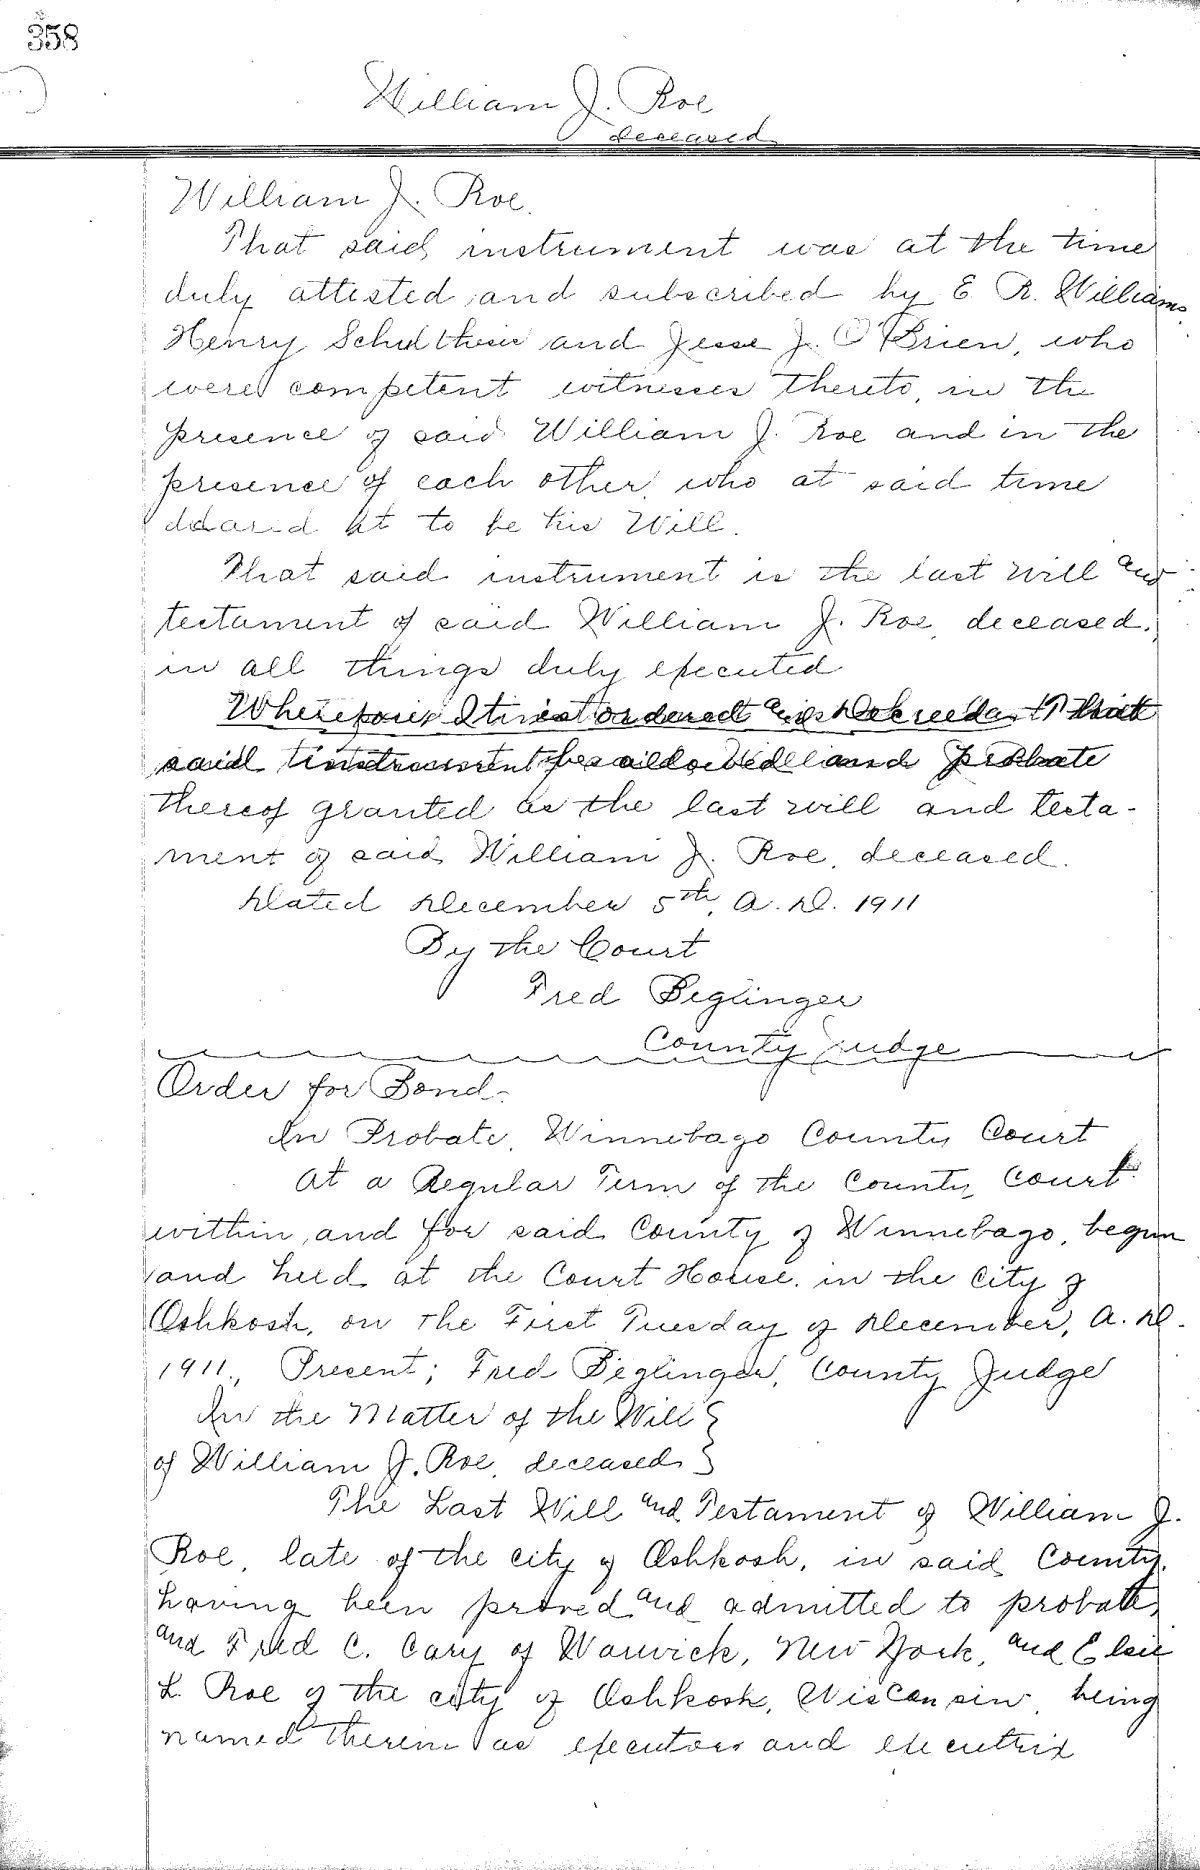 358
William J. Roe
deceased
William J. Roe.
That said instrument was at the time
duly attested and subscribed by E. R. Williams,
Henry Schultheis and Jesse J. O'Brien, who
were competent witnesses thereto, in the
presence of said William J. Roe and in the
presence of each other, who at said time
to be his Will.
That said instrument is the last will and
testament of said William J. Roe, deceased,
in all things duly executed
Wherefore ordered that
said and probate
thereof granted as the last will and testa-
ment of said William J. Roe, deceased.
Dated December 5th, A. D. 1911
By the Court
Fred Beglinger
County Judge
Order for Bond.
In Probate, Winnebago County Court
At a Regular Term of the County Court
within and for said County of Winnebago, begun
and held at the Court House, in the City of
Oshkosh, on the First Tuesday of December, A. D.
1911., Present; Fred Beglinger, County Judge
In the Matter of the Will }
of William J. Roe, deceased }
The Last Will and Testament of William J.
Roe, late of the city of Oshkosh, in said County,
having been proved and admitted to probate,
and Fred C. Cary of Warwick, New York, and Elsie
L. Roe of the city of Oshkosh, Wisconsin, being
named therein as executors and executrix